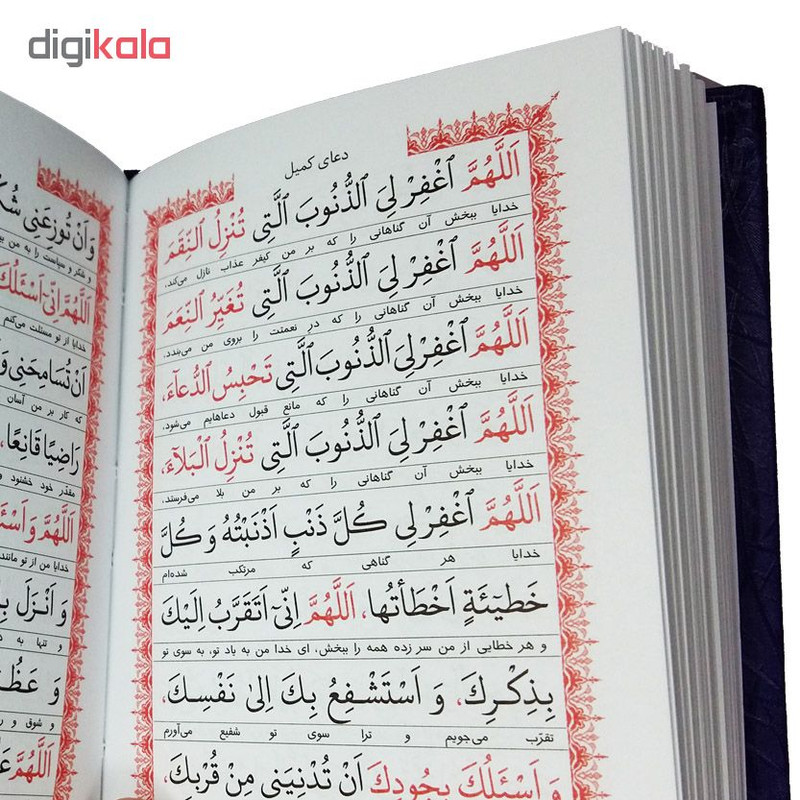 digikala
دعای کمیل
اَللّٰهُمَّ ٱغْفِرْ لِیَ ٱلذُّنُوبَ ٱلَّتِی تُنْزِلُ ٱلنِّقَمَ
خدایا ببخش آن گناهانی را که بر من کیفر عذاب نازل می‌کند.
اَللّٰهُمَّ ٱغْفِرْ لِیَ ٱلذُّنُوبَ ٱلَّتِی تُغَیِّرُ ٱلنِّعَمَ
خدایا ببخش آن گناهانی را که در نعمتت را بروی من می‌بندد.
اَللّٰهُمَّ ٱغْفِرْ لِیَ ٱلذُّنُوبَ ٱلَّتِی تَحْبِسُ ٱلدُّعآءَ،
خدایا ببخش آن گناهانی را که مانع قبول دعاهایم می‌شود.
اَللّٰهُمَّ ٱغْفِرْ لِیَ ٱلذُّنُوبَ ٱلَّتِی تُنْزِلُ ٱلْبَلآءَ،
خدایا ببخش آن گناهانی را که بر من بلا می‌فرستد.
اَللّٰهُمَّ ٱغْفِرْ لِی کُلَّ ذَنْبٍ اَذْنَبْتُهُ وَ کُلَّ
خدایا هر گناهی که مرتکب شده‌ام
خَطیٓئَةٍ اَخْطَأْتُها، اَللّٰهُمَّ اِنّیٓ اَتَقَرَّبُ اِلَیْکَ
و هر خطایی از من سر زده همه را ببخش، ای خدا من به یاد تو، به سوی تو
بِذِکْرِکَ، وَ اَسْتَشْفِعُ بِکَ اِلیٰ نَفْسِکَ،
تقرّب می‌جویم و ترا سوی تو شفیع می‌آورم
وَ اَسْئَلُکَ بِجُودِکَ اَنْ تُدْنِیَنی مِنْ قُرْبِکَ،
وَ اَنْ تُوزِعَنی
و شکر و سپاست را به من
اَللّٰهُمَّ اِنّیٓ اَسْئَلُکَ
خدایا از تو مسئلت می‌کنم
اَنْ تُسامِحَنی وَ
که کار بر من آسان
رَاضِیًا قَانِعًا،
مقدّر خود خشنود و
اَللّٰهُمَّ وَ
خدایا من از تو مانند
وَ اَنْزَلَ
و تنها به
وَ
و شوق و
اَللّٰهُمَّ